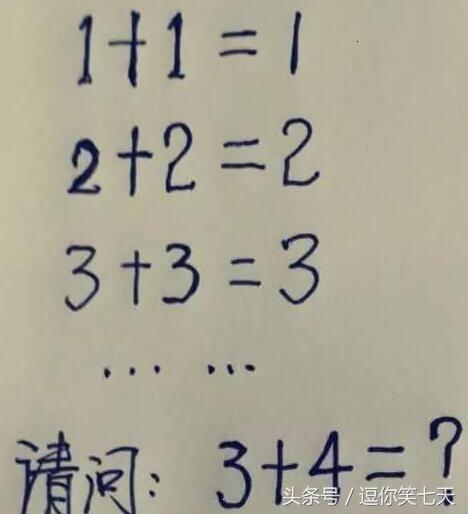 1+1=1
2+2=2
3+3=3
... ...
请问: 3+4=?
头条号/逗你笑七天